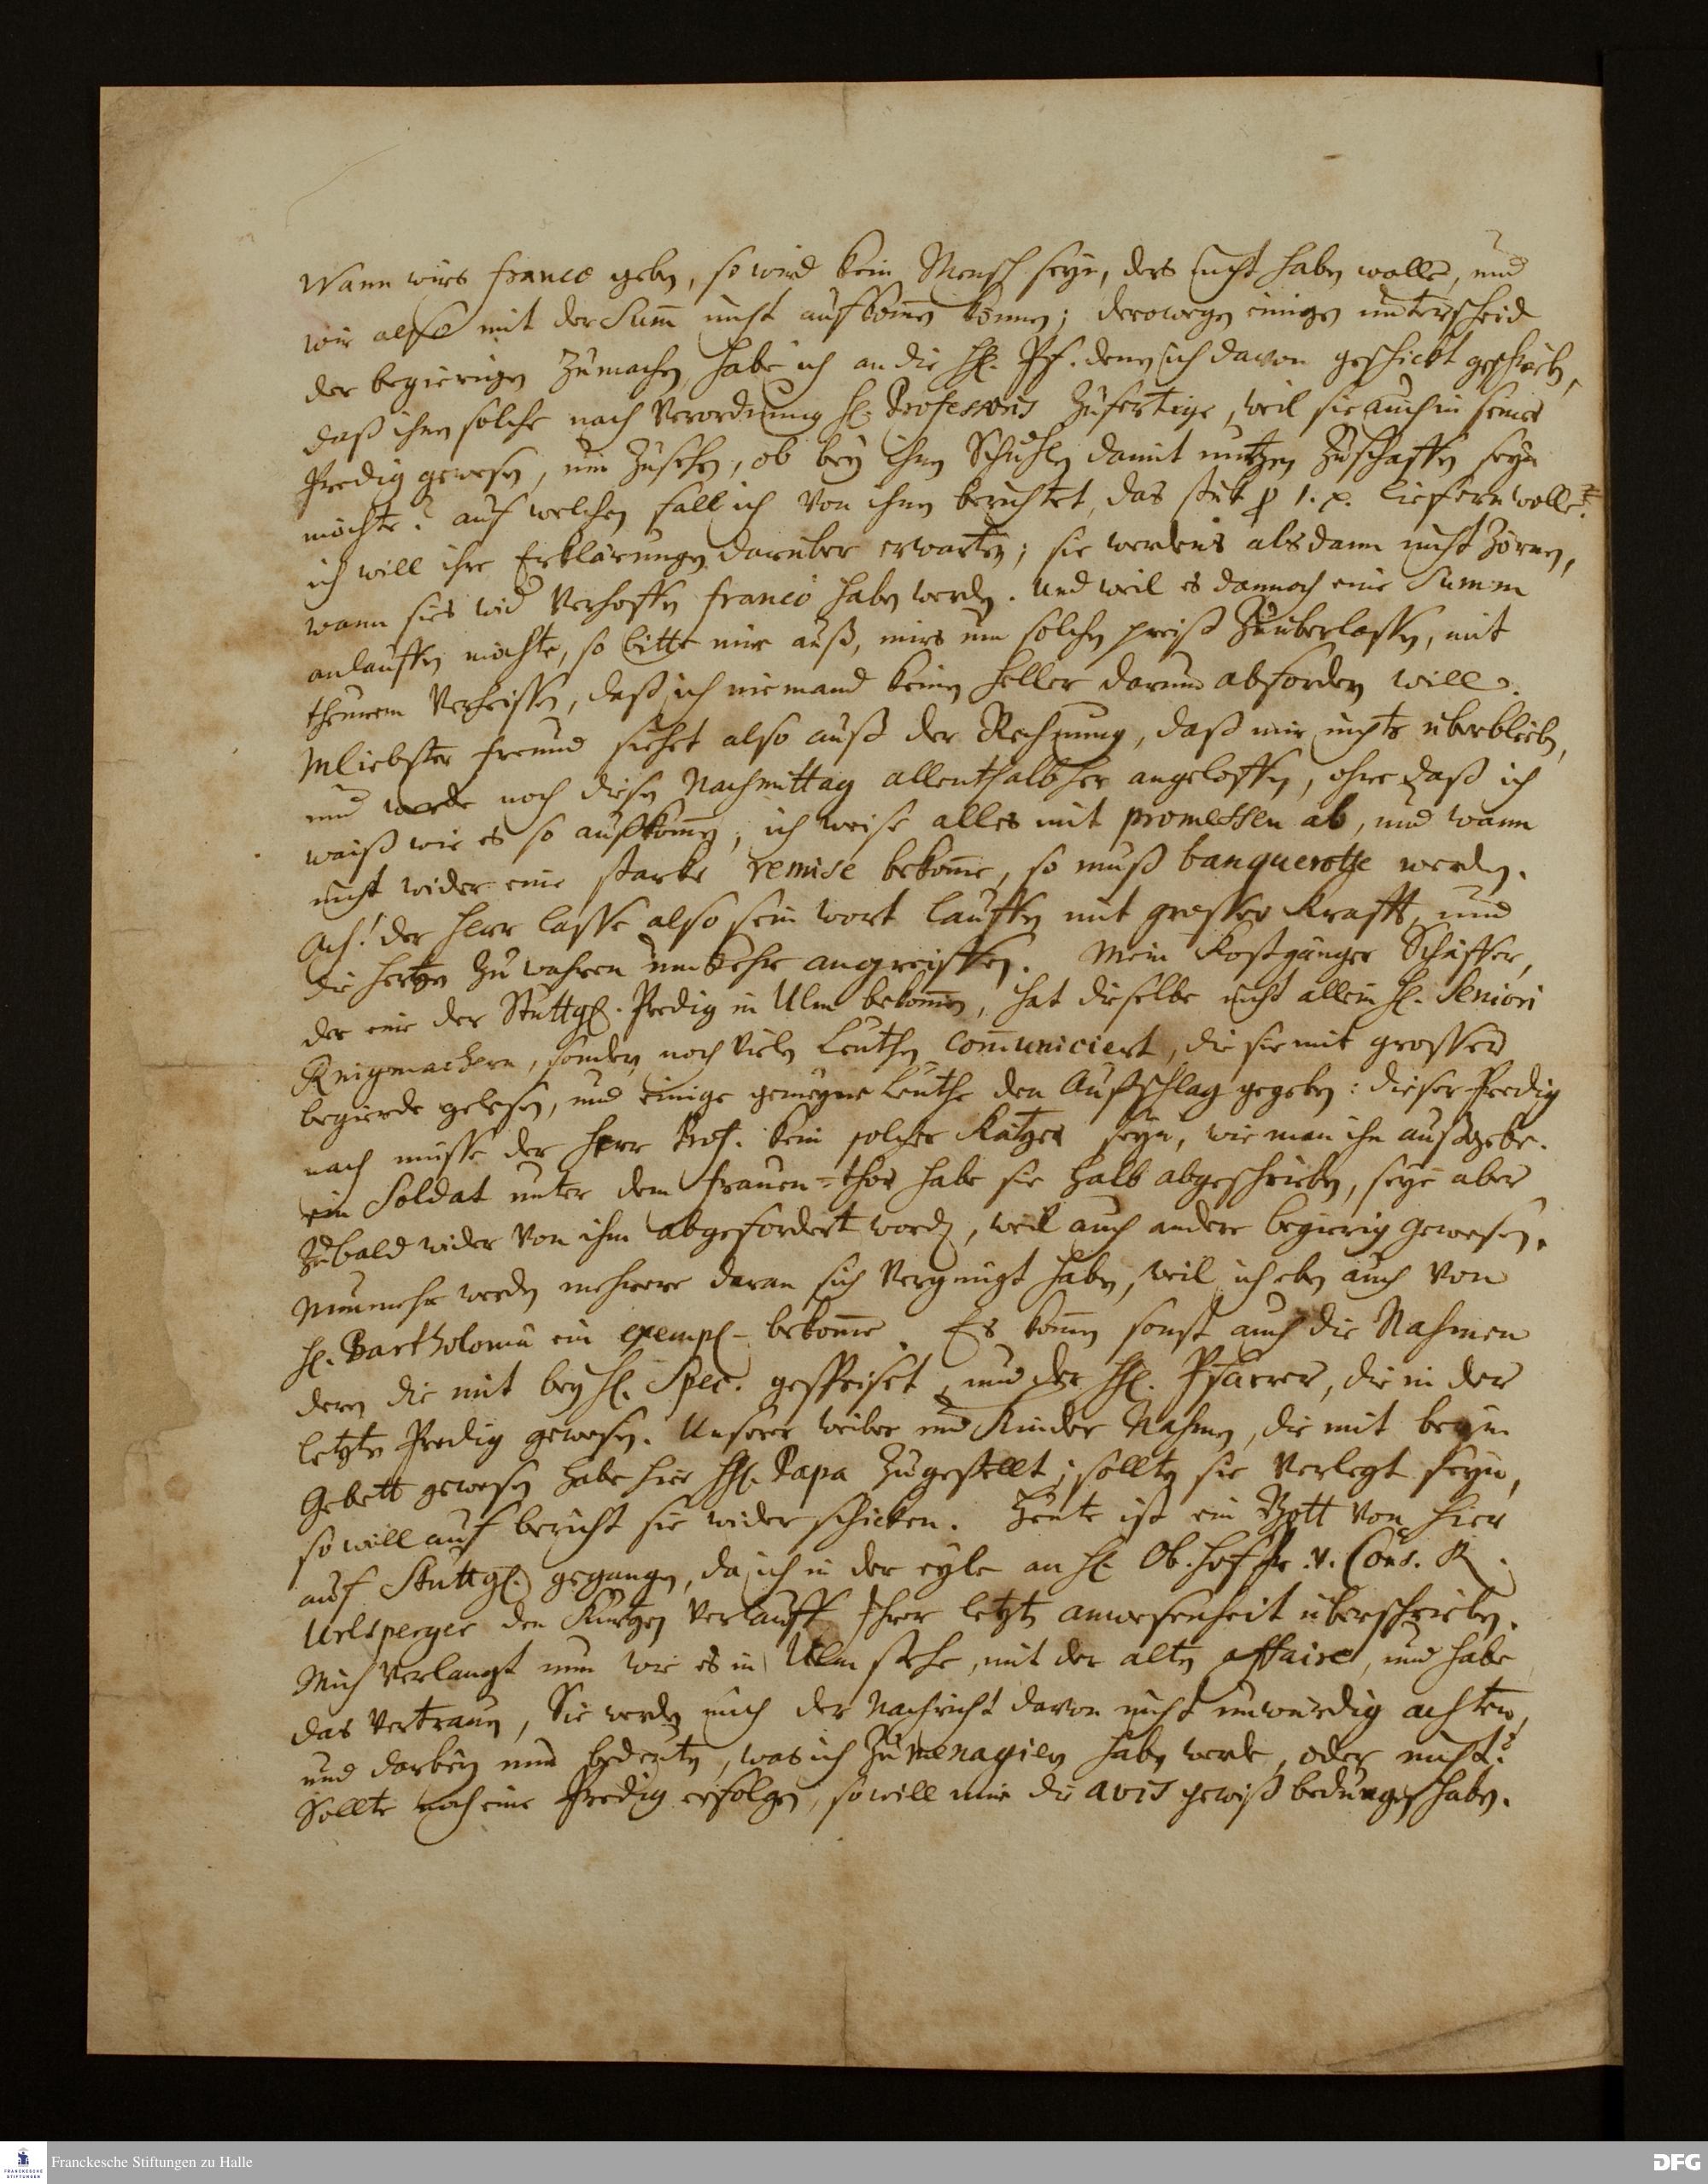 Wann wirs franco geben, so wird kein Mensch seyn, ders nicht haben wolle, und
wir also mit der Sum̄ nicht aufkom̄en können; derowegen einigen unterscheid
der begierigen zumachen, habe ich an die HE. Pf. denen ich davon geschickt geschrieben,
daß ihnen solche nach Verordnung H. Professoris zufertige, weil sie auch in seiner
Predig gewesen, um zusehen, ob bey ihren Schuhlen damit nutzen zuschaffen seyn
möchte? auf welchen fall ich von ihnen berichtet, das stük p 1. x. liefern wolle.
ich will ihre Erklärungen darüber erwarten; sie werdens alsdann nicht zörnen,
wann sies wid Verhoffen franco haben werden. Und weil es dannoch eine Summ
anlauffen möchte, so bitte mir auß, mirs um solchen preiß zuüberlassen, mit
theurem Verheissen, daß ich niemand keinen Heller darum abfordern will.
Mliebster freund siehet also auß der Rechnung, daß mir nichts überblieben,
und werde noch diesen Nachmittag allenthalb her angeloffen, ohne daß ich
waiß wie es so aufkom̄en, ich weise alles mit promessen ab, und wann
nicht wider eine starke remise bekom̄e, so muß banquerotte werden.
Ach! der Herr lasse also sein wort lauffen mit grosser Krafft, und
die hertzen zu wahrer umkehr angreiffen. Mein Kostgänger Schäffer,
der eine der Stuttg. Predig in Ulm bekom̄en, hat dieselbe nicht allein H. Seniori
Knigmachern, sondern noch vielen Leuthen com̄uniciert, die sie mit grosser
begierde gelesen, und einige gemeyne Leuthe den Außschlag gegeben: dieser Predig
nach müsse der Herr Prof. kein solcher Kätzer seyn, wie man ihn außgebe.
ein Soldat unter dem frauen-thor habe sie halb abgeschrieben, seye aber
zu bald wider von ihm abgefordert worden, weil auch andere begierig gewesen.
Nunmehr werden mehrere daran sich Vergnügt haben, weil ich eben auch von
H. Bartholomä ein exempl. bekom̄e. Es kom̄en sonst auch die Nahmen
deren die mit bey H. Spec. gespeiset, und der HE. Pfarrer, die in der
letzten Predig gewesen. Unserer weiber und Kinder Nahmen, die mit beym
Gebett gewesen habe hier HE. Papa zugestellt; sollten sie verlegt seyn,
so will auf bericht sie wider schicken. Heute ist ein Bott von hier
auf Stuttg. gegangen, da ich in der eyle an H. Ob. hoff Pr. v. Cons. R.
Urlsperger den Kurtzen Verlauff Ihrer letzten anwesenheit überschrieben.
Mich verlangt nun wie es in Ulm stehe, mit der alten affaire, und habe
das Vertrauen, Sie werden mich der Nachricht davon nicht unwürdig achten,
und darbey nun bedeuten, was ich zu menagieren haben werde, oder nicht?
Sollte noch eine Predig erfolgen, so will mir die avis gewiß bedungen haben.
Franckesche Stiftungen zu Halle
FRANCKESCHE STIFTUNGEN
DFG